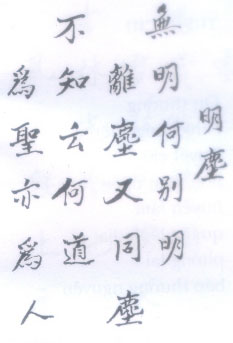 明塵
無明何別明
離塵又同塵
不知云何道
爲聖亦爲人